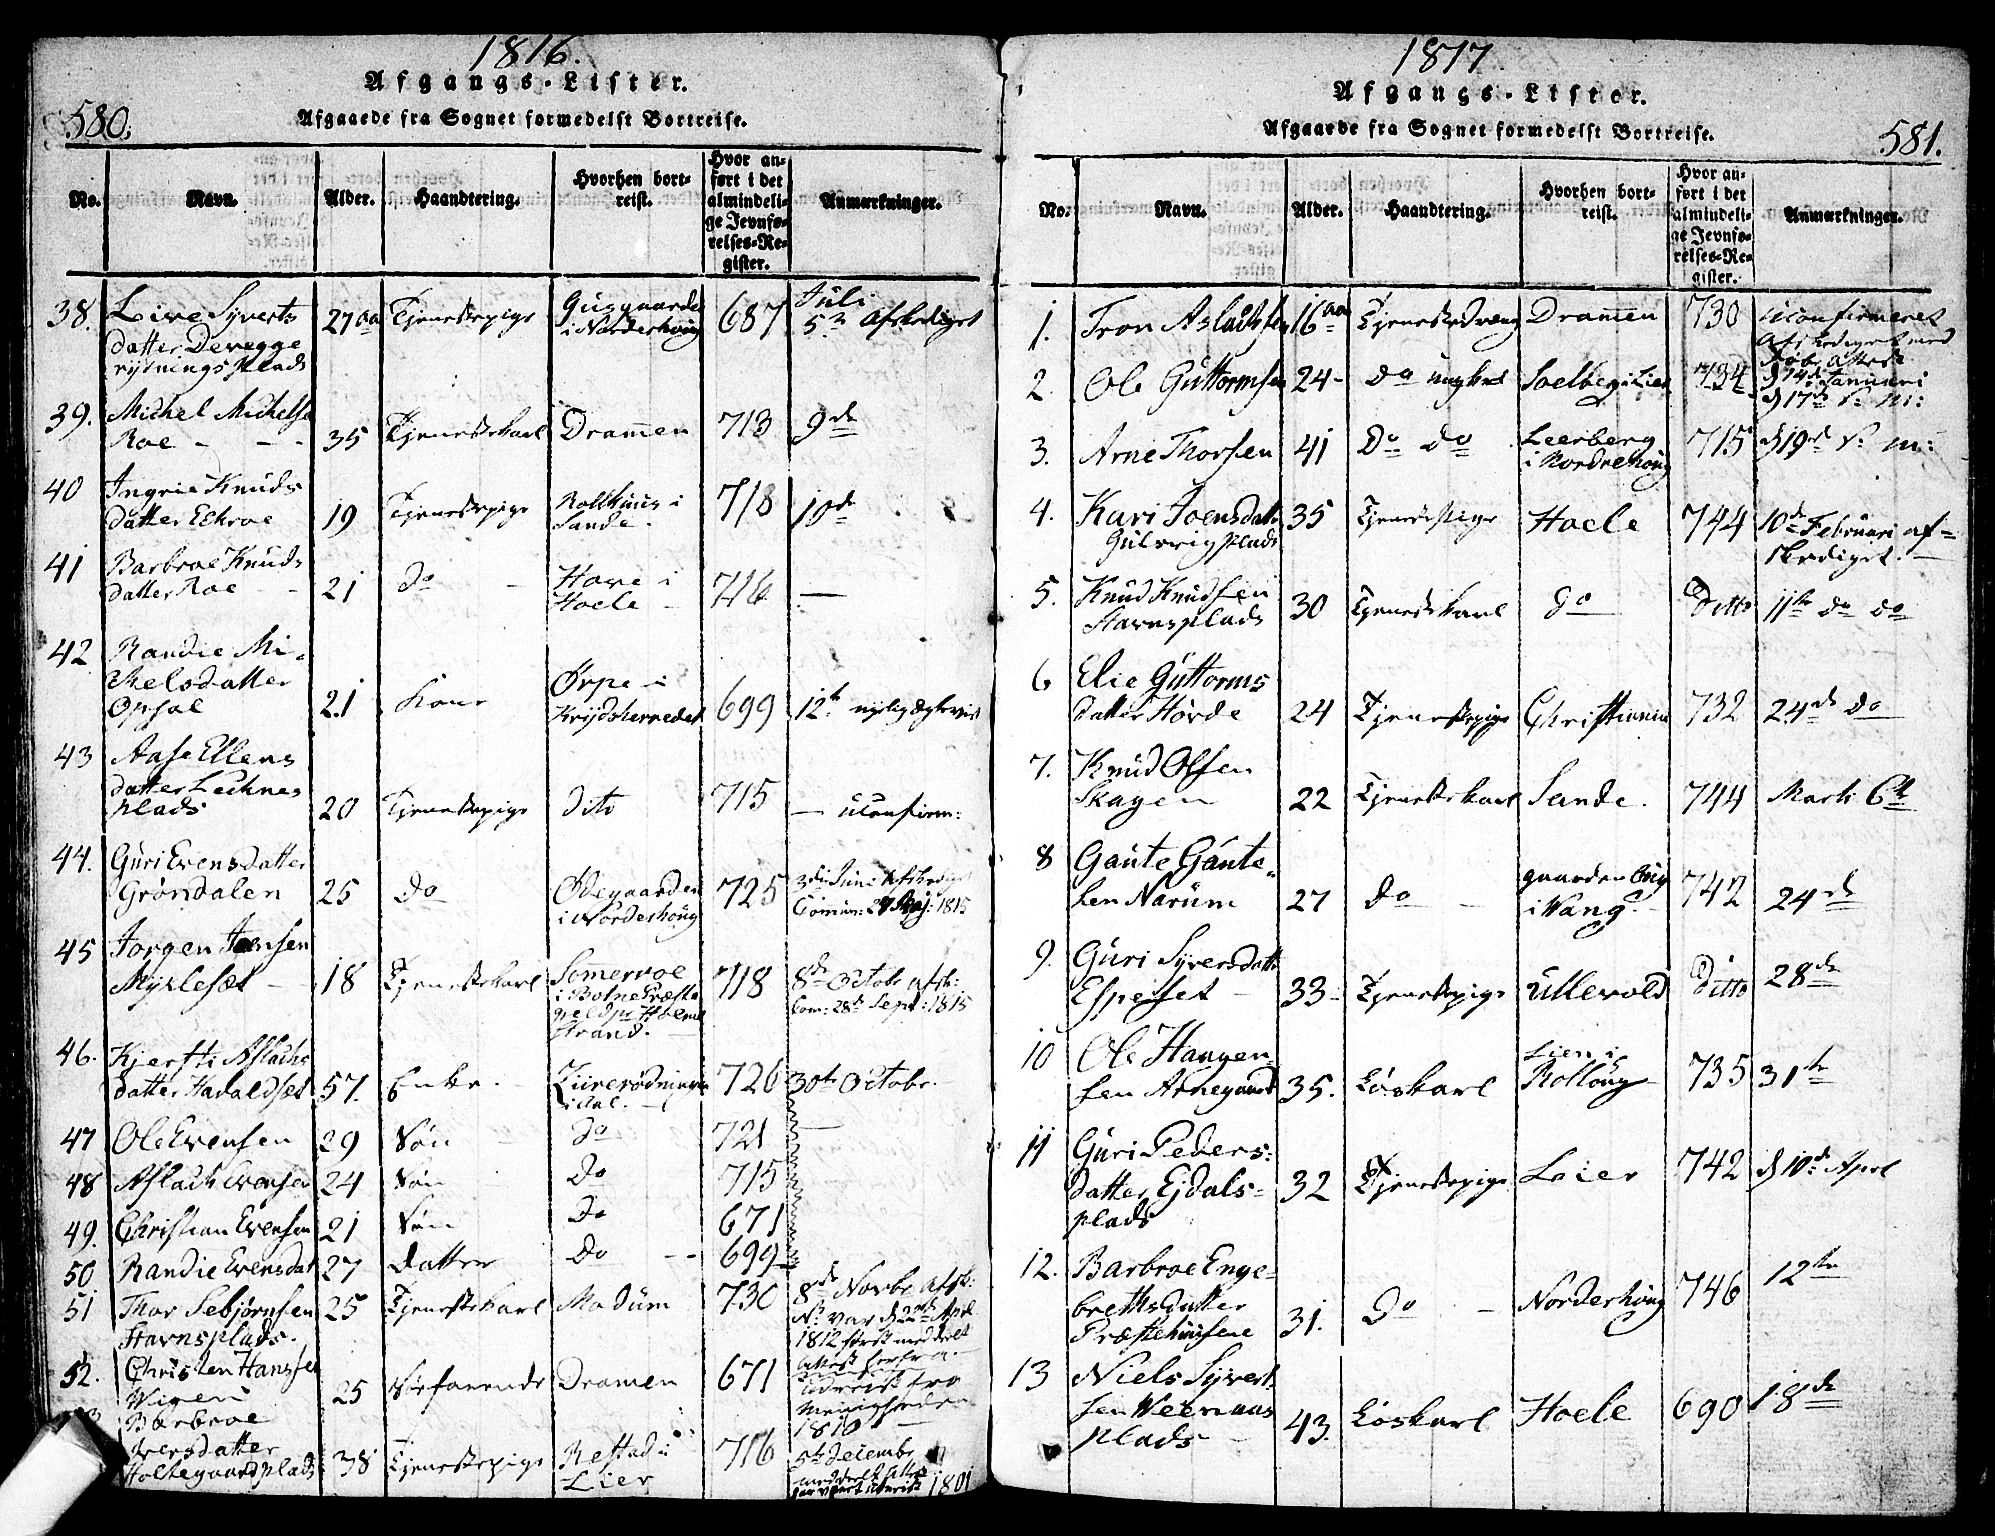 1816.
Afgangs-Lister.
580.
Afgaaede fra Sognet formedelst Bortreise.
No. Navn. Alder. Haandtering. Hvorhen bortreist. Hvor anført i det almindelige Jevnførelses-Register. Anmærkninger.
38. Live Syverts 27 aa Tjenestepige 687 Juli
datter Devegge i Norderhoug 5te Afskediget
rydnings Plads
39. Michel Michels
Roe - - - 35 Tjenestekarl Dramen 713 9de
40 Ingrie Knuds
datter Ekroe 19 Tjenestepige i Sande. 718 10de
41 Barbroe Knuds
datter Roe - - 21 do - Hove i Hoele - 716 —
42 Randie Mi-
chelsdatter
Opsal 21 Kone Ørpe i Krydsherredet 699 12te
43 Aase Ellens
datter
plads 20 Tjenestepige dito 715 — uconfirm:
44. Guri Evensdatter
Grøndalen 25 do Ødegaarden i Norderhoug 725 3die Juni
Comun: 1815
45 Jorgen Jensen
Myrleset - 18 Tjenestekarl 718 8de Octobr afsk:
i Botne Præste Com: 28de Sept: 1815
strand.
46. Kjersti Aslachs
datter Haraldset 57. Enke. i Aal. 726 30te Octobr.
47 Ole Evensen 29 Søn do 721 —
48 Aslach Evensen 24 Søn do 715
49. Christian Evensen 21 Søn do 671
50 Randie Evensdat 27 datter do - - 699
51 Thor Sebjørnsen 25 Tjenestekarl Modum 730 8de Novbr afsk:
Stavnsplads. 1812 først meddelt
52. Christen Hanssen
Wigen 25 Søefarende Dramen 671 fra Menigheden 1810
Barbroe
Iversdatter 5te Decembr
Holtegaardplads 38 Tjenestepige i Lier 716 1801
1817
Afgangs-Lister.
Afgaaede fra Sognet formedelst Bortreise.
581.
No. Navn. Alder. Haandtering. Hvorhen bortreist. Hvor anført i det almindelige Jevnførelses-Register. Anmærkninger.
1. Tron Aslachsen 16 aa Tjenestedreng Dramen 730 uconfirmeret
Afskediget med
Døbe Attest
d 14de Januari
2. Ole Guttormsen 24- do Soelberg i Lier 734 d 17de s: m:
3. Arne Thorsen 41 do do Leerberg i Nordrehoug 715 d 19de s: m:
4. Kari Joensdatt 35 Tjenestepige Hoele 744 10de Februari af-
Gulsvig plads skediget. —
5. Knud Knudsen
Stavnsplads 30 Tjenestekarl do Ditto 11te do do
6 Elie Guttorms
datter Hørde 24 Tjenestepige Christiania 732 24de do
7. Knud Olsen
Skagen 22 Tjenestekarl Sande. 744 Marti 6te
8 Gaute Gaute-
sen Narum 27 do - gaarden i Wang. 742 24de
9. Guri Syversdatt
Espeset - 33- Tjenestepige Ullevold Ditto 28de
10 Ole Haagen-
sen Arnegaard 35. Løskarl Lien i Rolloug 735 31te
11 Guri Peders-
datter Ejdals-
plads 32 Tjenestepige Leier 742 d 10de April
12. Barbroe Enge-
brethsdatter
Præstehuusene 31. do - Norderhoug 746 12te
13 Niels Syvert-
sen
plads - 43. Løskarl Hoele 690 18de